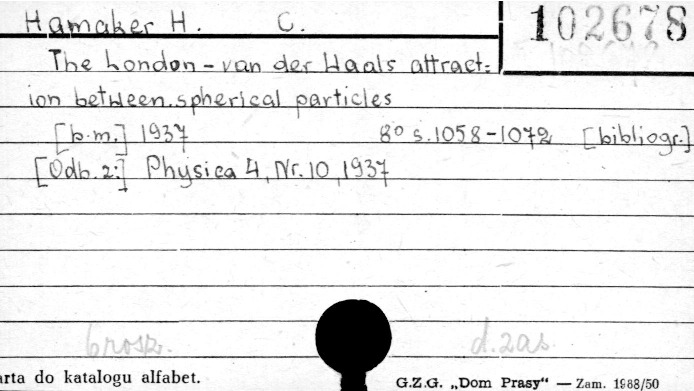 Hamaker H. C.
102678
The London - van der Waals attract=
ion between spherical particles
[b.m.] 1937 8° s. 1058-1072 [bibliogr.]
[Odb. z:] Physica 4, Nr. 10, 1937
brosz. d. zas
arta do katalogu alfabet.
G.Z.G. „Dom Prasy“ — Zam. 1988/50